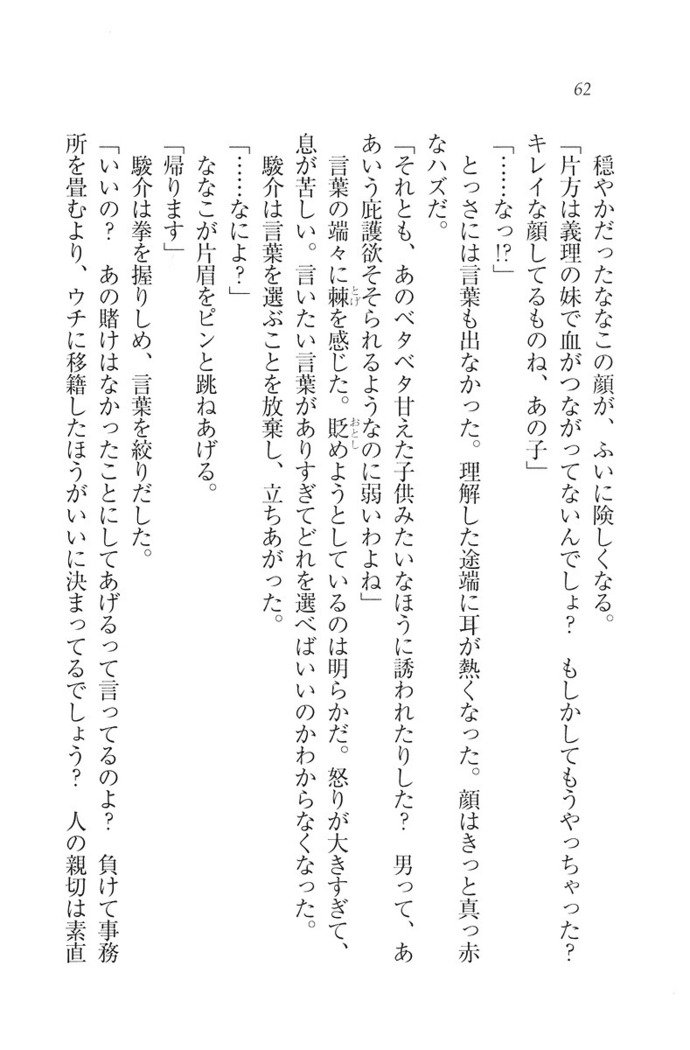 62
穏やかだったななこの顔が、ふいに険しくなる。
「片方は義理の妹で血がつながってないんでしょ？　もしかしてもうやっちゃった？
キレイな顔してるものね、あの子」
「……なっ!?」
とっさには言葉も出なかった。理解した途端に耳が熱くなった。顔はきっと真っ赤
なハズだ。
「それとも、あのベタベタ甘えた子供みたいなほうに誘われたりした？　男って、あ
あいう庇護欲そそられるようなのに弱いわよね」
言葉の端々に棘とげを感じた。貶おとしめようとしているのは明らかだ。怒りが大きすぎて、
息が苦しい。言いたい言葉がありすぎてどれを選べばいいのかわからなくなった。
駿介は言葉を選ぶことを放棄し、立ちあがった。
「……なによ？」
ななこが片眉をピンと跳ねあげる。
「帰ります」
駿介は拳を握りしめ、言葉を絞りだした。
「いいの？　あの賭けはなかったことにしてあげるって言ってるのよ？　負けて事務
所を畳むより、ウチに移籍したほうがいいに決まってるでしょう？　人の親切は素直